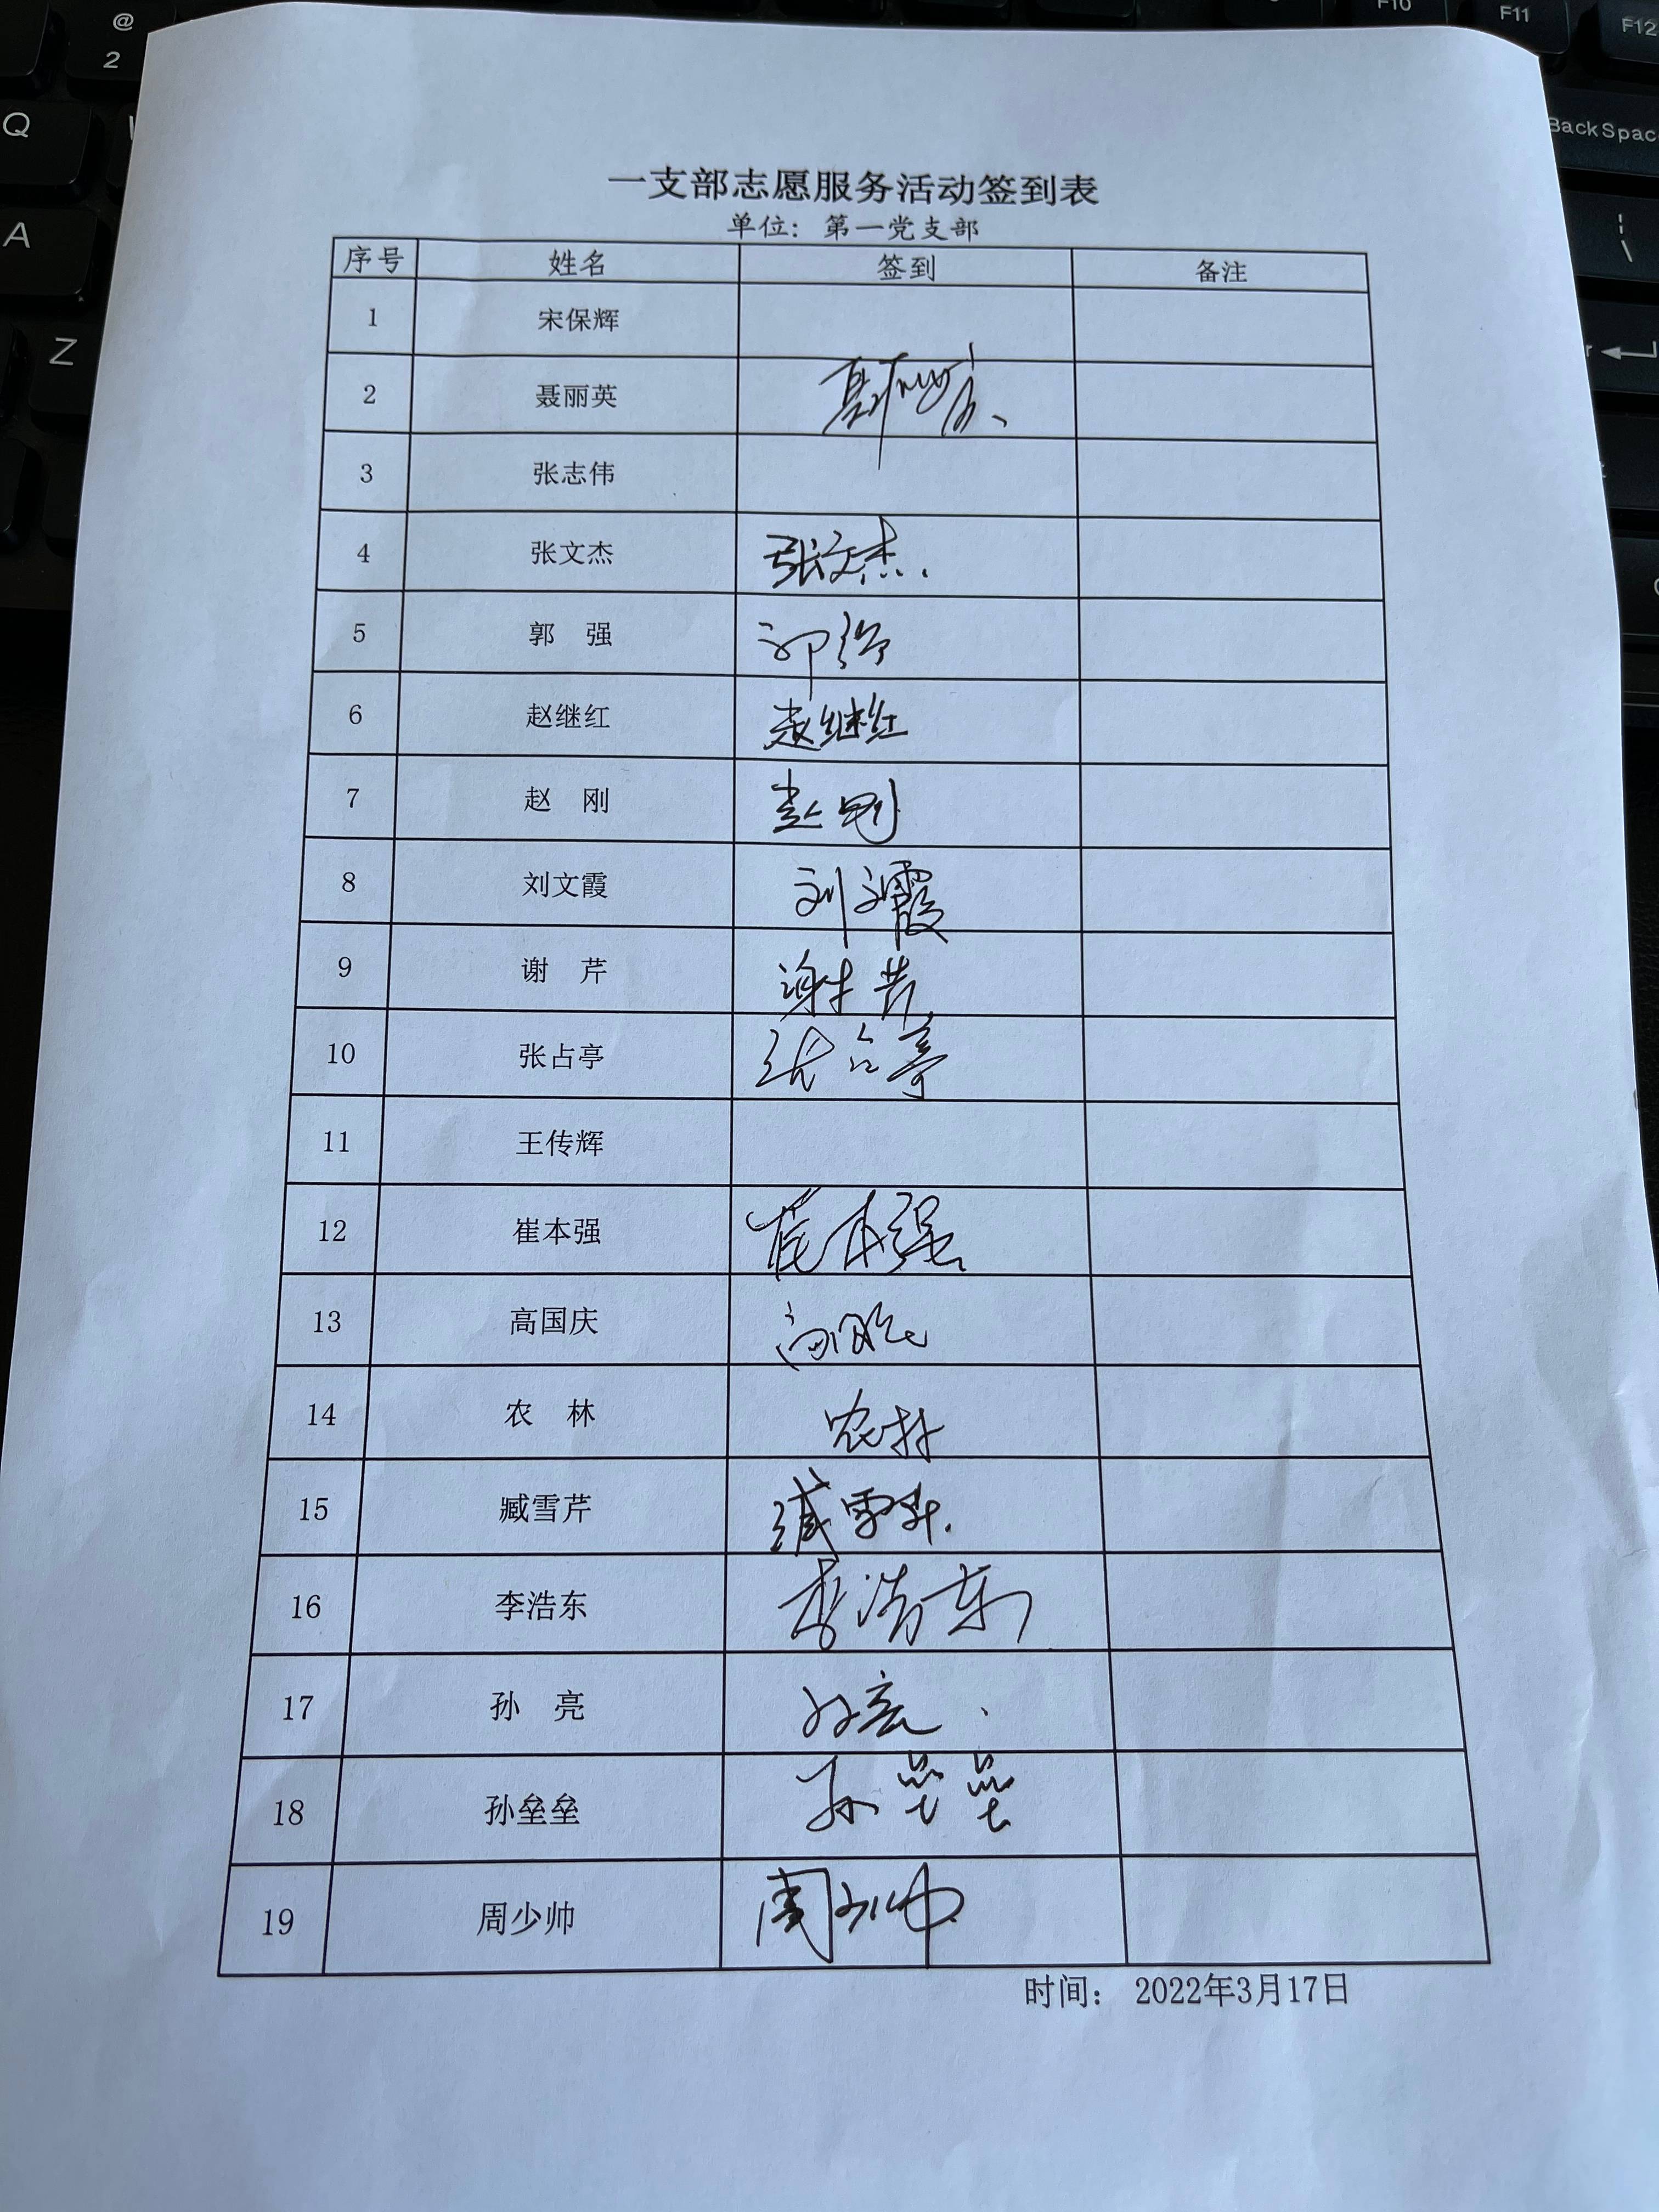 @
2
F10
F11
F12
Q
BackSpac
A
\
Z
一支部志愿服务活动签到表
单位：第一党支部
序号 姓名 签到 备注
1 宋保辉
2 聂丽英 聂丽英
3 张志伟
4 张文杰 张文杰
5 郭 强 郭强
6 赵继红 赵继红
7 赵 刚 赵刚
8 刘文霞 刘文霞
9 谢 芹 谢芹
10 张占亭 张占亭
11 王传辉
12 崔本强 崔本强
13 高国庆 高国庆
14 农 林 农林
15 臧雪芹 臧雪芹
16 李浩东 李浩东
17 孙 亮 孙亮
18 孙垒垒 孙垒垒
19 周少帅 周少帅
时间： 2022年3月17日